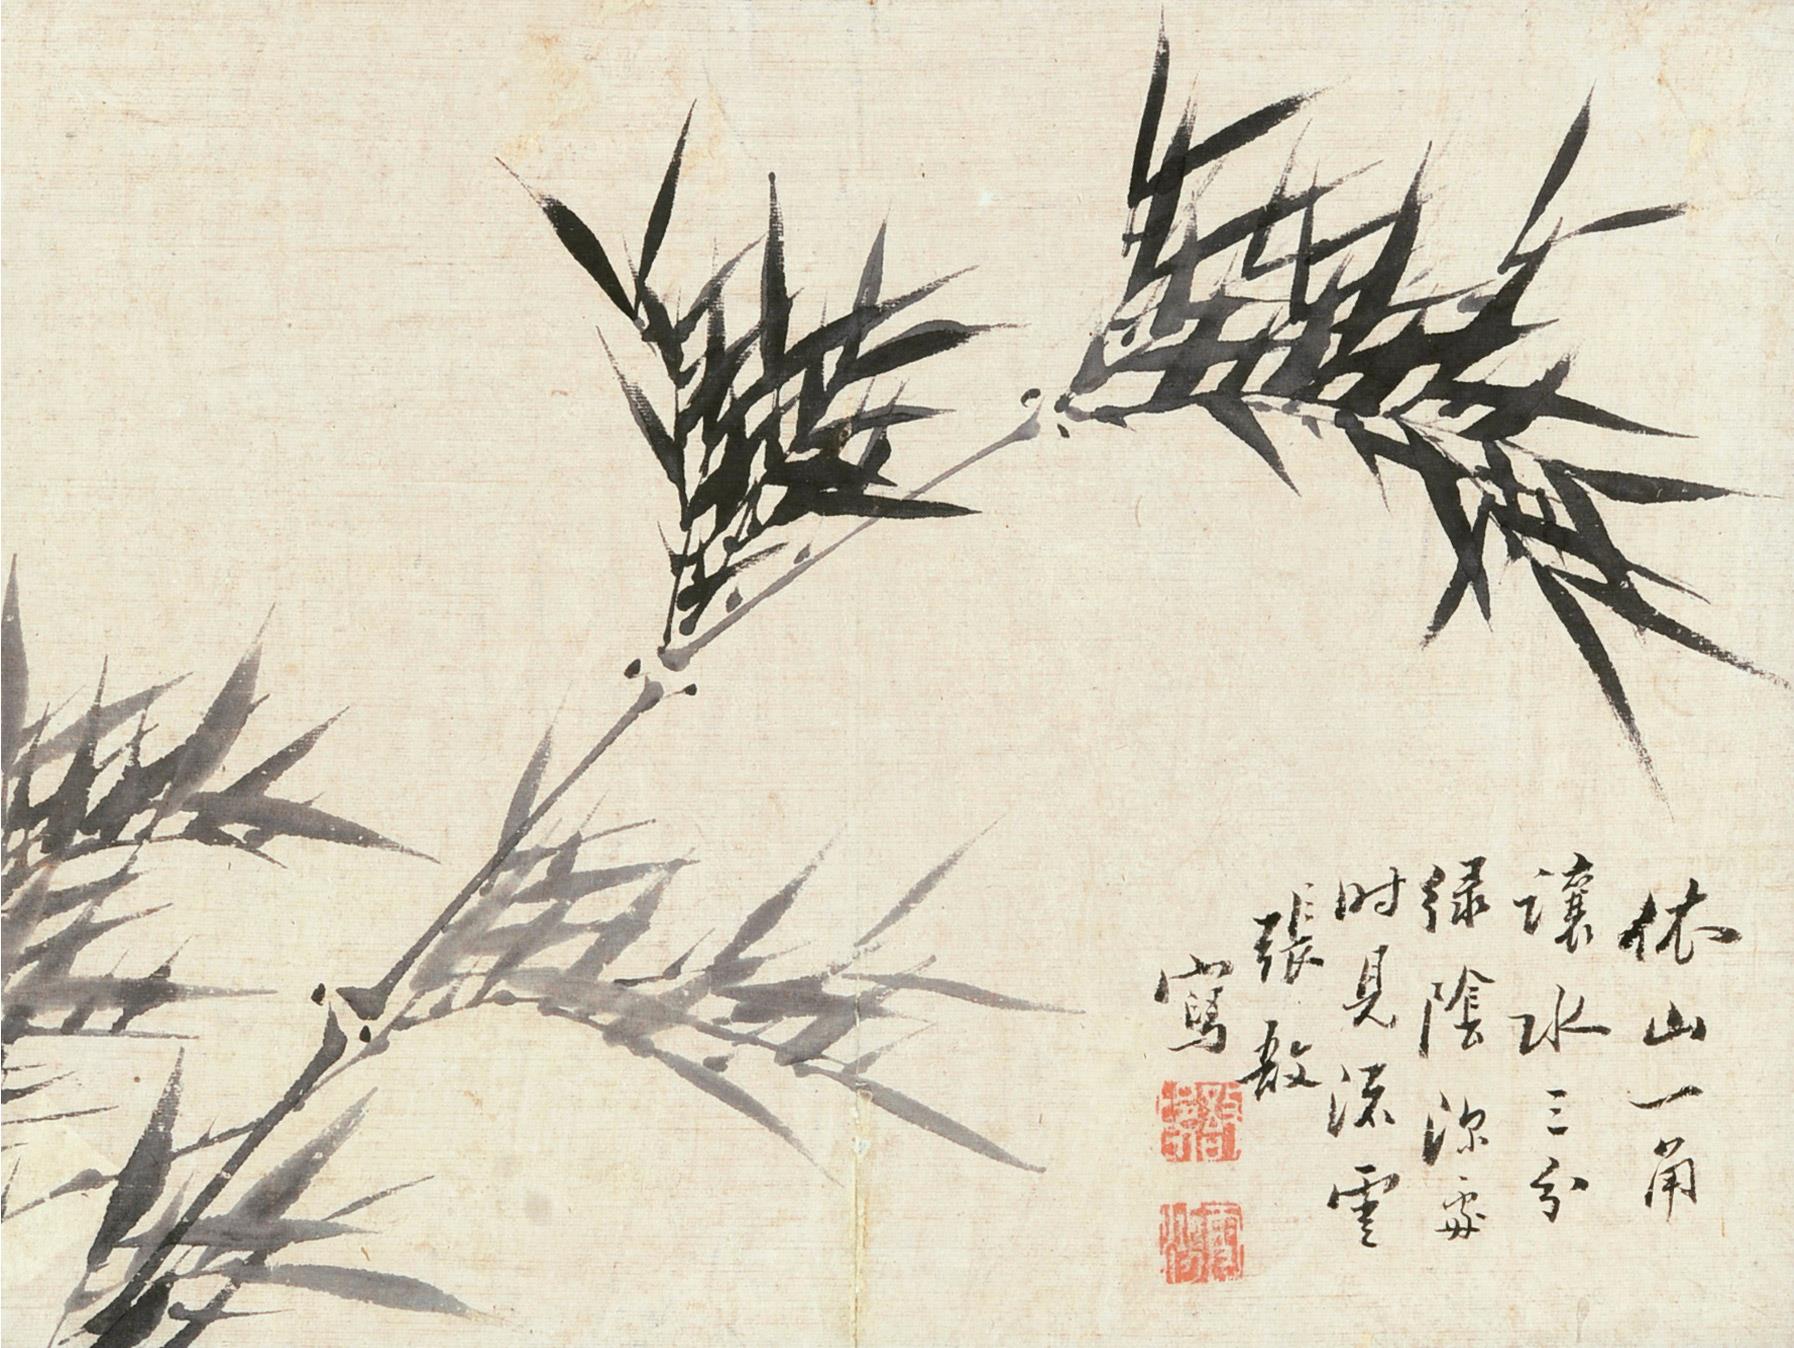 依山一角
讓水三分
绿陰深處
时見流雲
張敔
寫